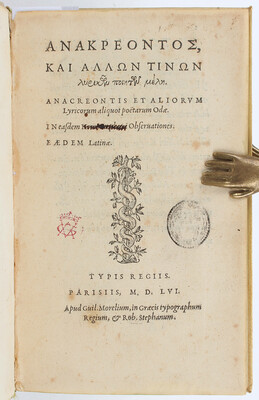 ΑΝΑΚΡΕΟΝΤΟΣ,
ΚΑΙ ΑΛΛΩΝ ΤΙΝΩΝ
λυρικῶν ποιητῶν μέλη.
ANACREONTIS ET ALIORVM
Lyricorum aliquot poëtarum Odæ.
IN easdem Obseruationes.
EÆDEM Latinæ.
TYPIS REGIIS.
PARISIIS, M. D. LVI.
Apud Guil. Morelium, in Græcis typographum
Regium, & Rob. Stephanum.